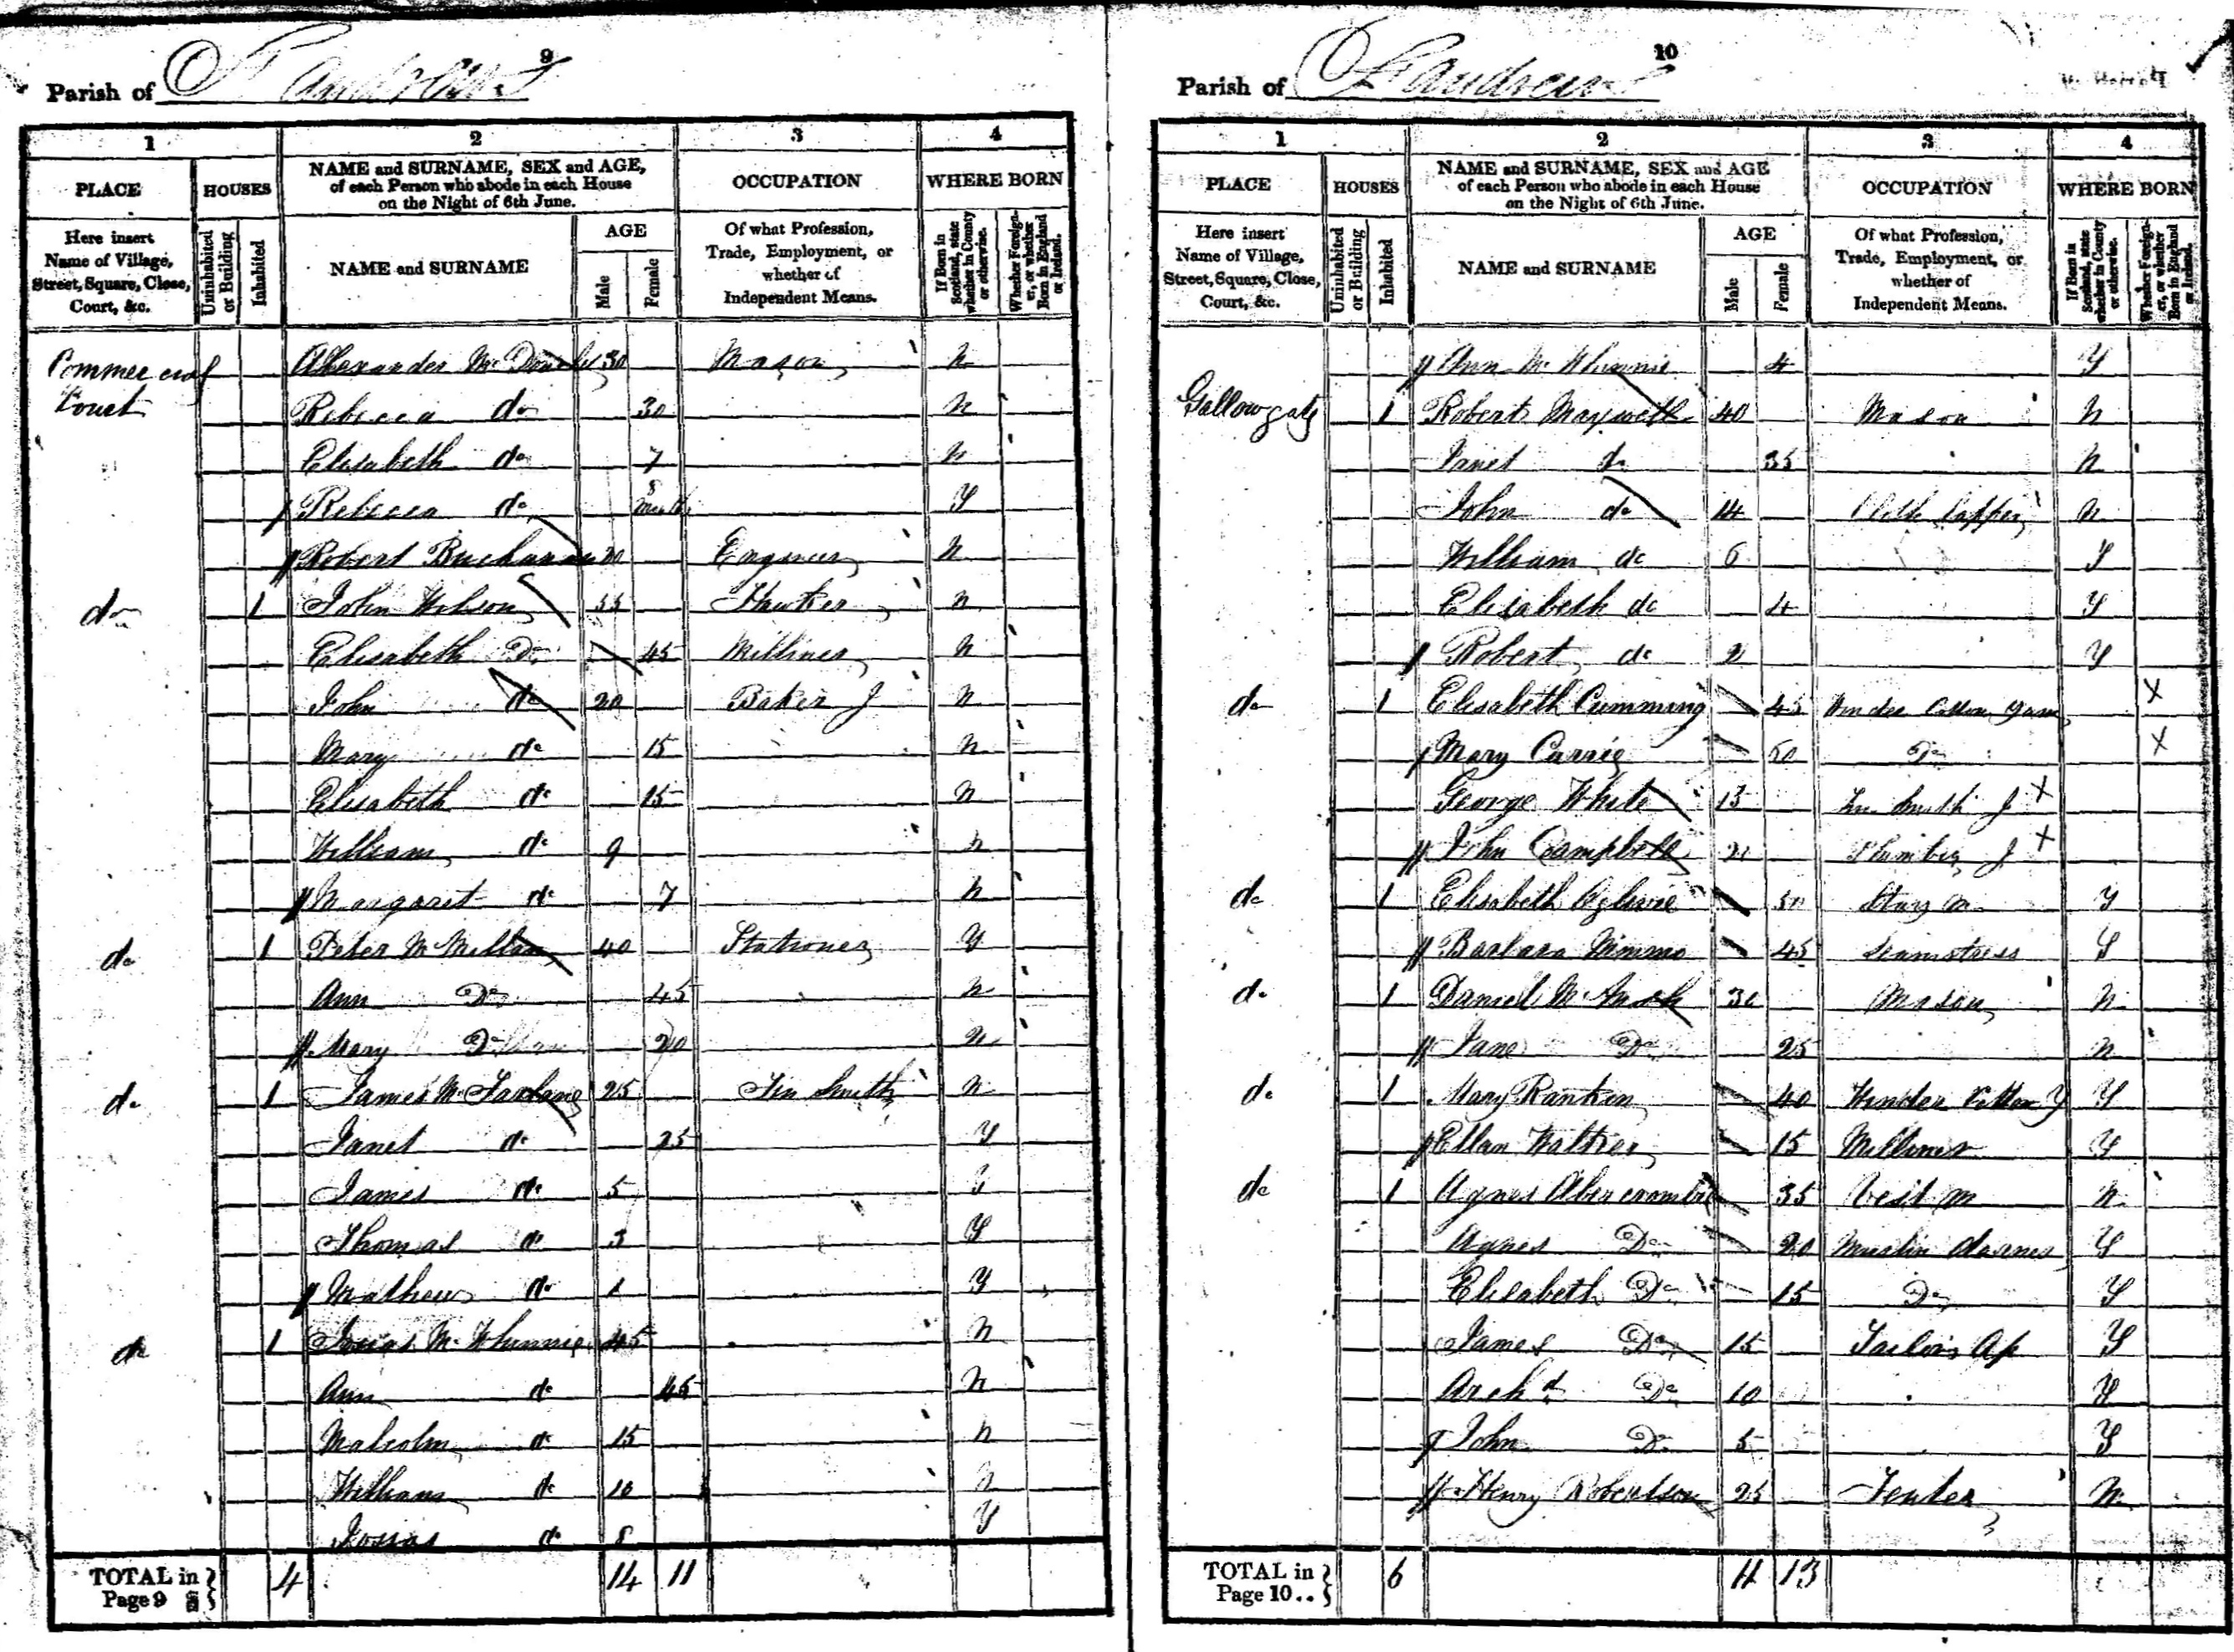 9
Parish of St Andrews
1 2 3 4
PLACE HOUSES NAME and SURNAME, SEX and AGE, of each Person who abode in each House on the Night of 6th June. OCCUPATION WHERE BORN
Here insert Name of Village, Street, Square, Close, Court, &c. Uninhabited or Building Inhabited NAME and SURNAME AGE Male Female Of what Profession, Trade, Employment, or whether of Independent Means. If Born in Scotland, state whether in County or otherwise. Whether Foreigner, or whether Born in England or Ireland.
Commercial Court Alexander Mc 30 Mason N
Rebecca do 30 N
Elisabeth do 7 N
Rebecca do 8 Y
Robert Buchanan 20 Engineer N
do 1 John Wilson 55 Hawker N
Elisabeth Do 45 Milliner N
John do 20 Baker J N
Mary do 15 N
Elisabeth do 15 N
William do 9 N
Margaret do 7 N
do 1 Peter McMillan 40 Stationer Y
Ann Do 45 N
Mary Do 20 N
do 1 James McFarlane 25 Tin Smith N
Janet do 25 Y
James do 5 Y
Thomas do 3 Y
Mathew do 1 Y
do 1 Josias McWhinnie 45 N
Ann do 45 N
Malcolm do 15 N
William do 10 N
Josias do 8 Y
TOTAL in Page 9 4 14 11
10
Parish of St Andrews
1 2 3 4
PLACE HOUSES NAME and SURNAME, SEX and AGE of each Person who abode in each House on the Night of 6th June. OCCUPATION WHERE BORN
Here insert Name of Village, Street, Square, Close, Court, &c. Uninhabited or Building Inhabited NAME and SURNAME AGE Male Female Of what Profession, Trade, Employment, or whether of Independent Means. If Born in Scotland, state whether in County or otherwise. Whether Foreigner, or whether Born in England or Ireland.
Ann McWhinnie 4 Y
Gallowgate 1 Robert 40 Mason N
Janet do 35 N
John do 14 Cloth Lapper N
William do 6 Y
Elisabeth do 4 Y
Robert do 2 Y
do 1 Elisabeth Cumming 45 Winder Cotton Yarn X
Mary Currie 50 Do X
George White 15 Tin Smith J X
John Campbell 20 Plumber J X
do 1 Elisabeth 50 Stays M Y
Barbara Nimmo 45 Seamstress Y
do 1 Daniel 30 Mason N
Jane Do 25 N
do 1 Mary Rankin 40 Winder Cotton Y Y
Ellan Walker 15 Milliner Y
do 1 Agnes Abercrombie 35 Vest M N
Agnes Do 20 Muslin darner Y
Elisabeth Do 15 Do Y
James Do 15 Tailors Ap Y
Archd Do 10 Y
John Do 5 Y
Henry Robertson 25 Tenter N
TOTAL in Page 10.. 6 11 13